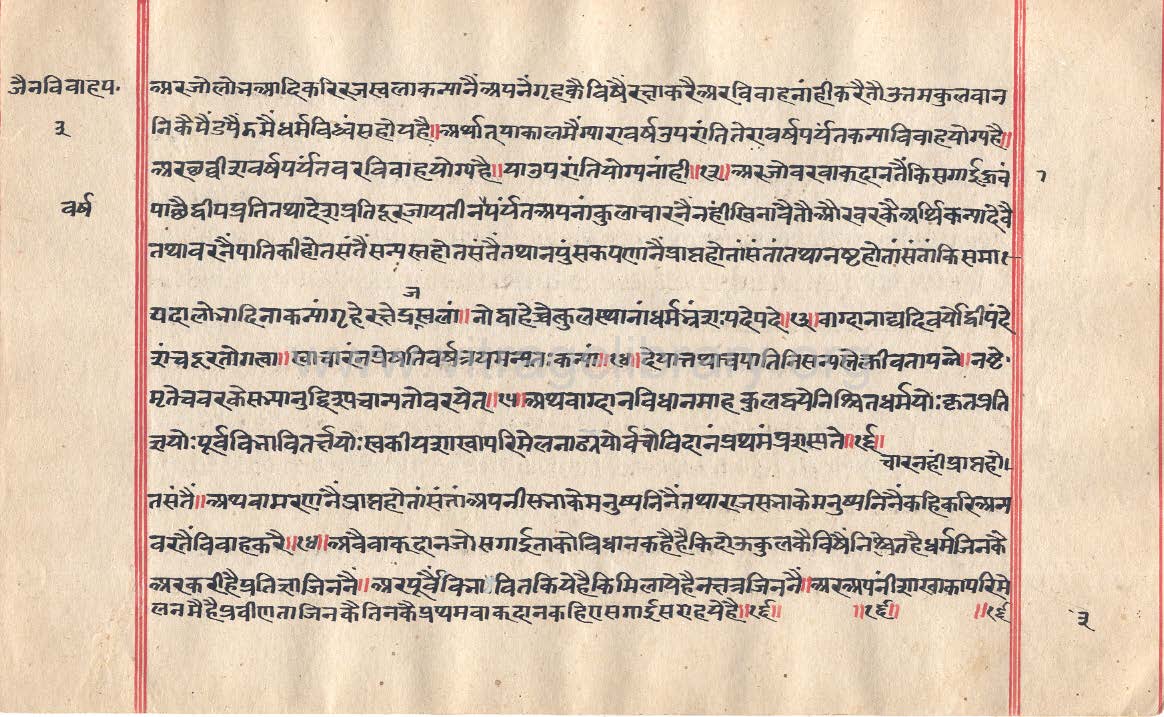 जैनविवाहप॰
३
वर्ष
अरजोलोभआदिकरिरजस्वलाकन्यानैंअपनेंगृहकैविषैंराखाकरैअरविवाहनांहीकरैतौउत्तमकुलवान
निकैपैंडपैडमैंधर्मविध्वंसहोयहै॥अर्थात्याकालमैंग्यारावर्षउपरांतितेरावर्षपर्यंतकन्याविवाहयोग्यहै॥
अरछव्वीशवर्षपर्यंतवरविवाहयोग्यहै॥याउपरांतियोग्यनांही॥१३॥अरजोवरवाकदानतैंकिसगाईहूवं
पाछैद्वीपप्रतितथादेशप्रतिदूरजायतीनपर्यंतअपनांकुलाचारनैंनहींखिनांवैतौऔरवरकैअर्थिकन्यादेवै
तथावरनैंपातिकीहोतसंतैंसन्यस्तहोतसंतैंतथानपुंसकपणानैंप्राप्तहोतांसंतांतथानष्टहोतांसंतांकिसमा
ज
यदालोभादिनाकन्यांगृहेरक्षेद्रस्वलां॥नोद्वाहेच्चेत्कुलस्थानांधर्मभ्रंशःपदेपदे॥१३॥वाग्दानाद्यदिवर्योद्वीपंदे
शंचदूरतोगत्वा॥स्वाचारंनप्रेषतिवर्षत्रयमन्यतःकन्यां॥१४॥देयात्तथाचपातिनिसन्यस्तेक्लीवतापन्ने॥नष्टे॰
मृतेचवरकैसभ्यानुद्दिश्पचान्यतोवरयेत्॥१५॥अथवाग्दानविधानमाह कुलद्वयेनिश्चितधर्मयोःकृतप्रति
ज्ञयोःपूर्वविभावितर्त्तयोःस्वकीयशाखापरिमेलनाढ्ययोर्वचोविदानंप्रथमंप्रशस्यते॥१६॥
चारनहींप्राप्तहो।
तसंतैं॥अथवामरणनैंप्राप्तहोतांसंतांअपनीसत्ताकेमनुष्यनिनैंतथाराजसत्ताकेमनुष्यनिनैंकहिकरिअन्य
वरतैंविवाहकरै॥१५॥अवैवाकदानजोसगाईताकोविधानकहैहैकिदोऊकुलकैविषैंनिश्चितहैधर्मजिनकै
अरकरीहैप्रतिज्ञाजिननैं॥अरपूर्वैविभावितकियेहैकिमिलायेहैनक्षत्रजिननैं॥अरअपनीशाखाकापरिमे
लनमैंहैप्रवीणताजिनकैतिनकैप्रथमवाकदानकहिएसगाईसराहयेहै॥१६॥ ॥१६॥ ॥१६
१
३
www.vitragelibrary.org